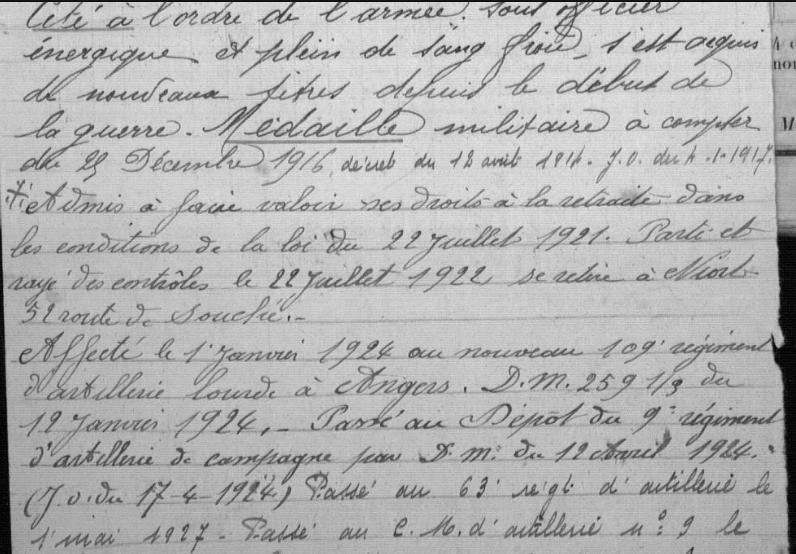 Cité à l'ordre de l'armée. Sous officier
énergique et plein de sang froid, s'est acquis
de nouveaux titres depuis le début de
la guerre. Médaille militaire à compter
du 25 Décembre 1916, décret du 12 août 1914. J.O. du 4-1-1917.
Admis à faire valoir ses droits à la retraite dans
les conditions de la loi du 22 Juillet 1921. Parti et
rayé des contrôles le 22 Juillet 1922 se retire à Niort
52 route de Souché.-
Affecté le 1er Janvier 1924 au nouveau 109e régiment
d'artillerie lourde à Angers. D.M. 259 1/3 du
12 Janvier 1924.- Passé au Dépôt du 9e régiment
d'artillerie de campagne par D.M. du 12 Avril 1924.
(J.O. du 17-4-1924) Passé au 63e régt d'artillerie le
1er mai 1927 - Passé au C.M. d'artillerie n° 9 le